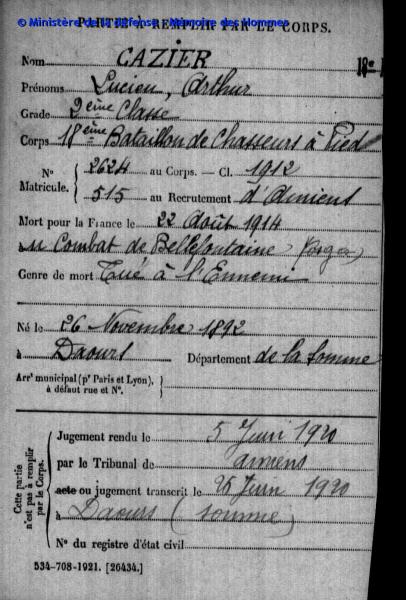 © Ministère de la défense - Mémoire des Hommes
PARTIE À REMPLIR PAR LE CORPS.
Nom CAZIER
Prénoms Lucien, Arthur
Grade 2ème Classe
Corps 18ème Bataillon de Chasseurs à Pied
N° Matricule. { 2624 au Corps. — Cl. 1912
515 au Recrutement d'Amiens
Mort pour la France le 22 Août 1914
au Combat de Bellefontaine (Vosges)
Genre de mort Tué à l'Ennemi
Né le 26 Novembre 1892
à Daours Département de la Somme
Arrt municipal (pr Paris et Lyon),
à défaut rue et N°.
Cette partie n'est pas à remplir par le Corps.
Jugement rendu le 5 Juin 1920
par le Tribunal de Amiens
acte ou jugement transcrit le 25 Juin 1920
à Daours (Somme)
N° du registre d'état civil
534-708-1921. [26434.]